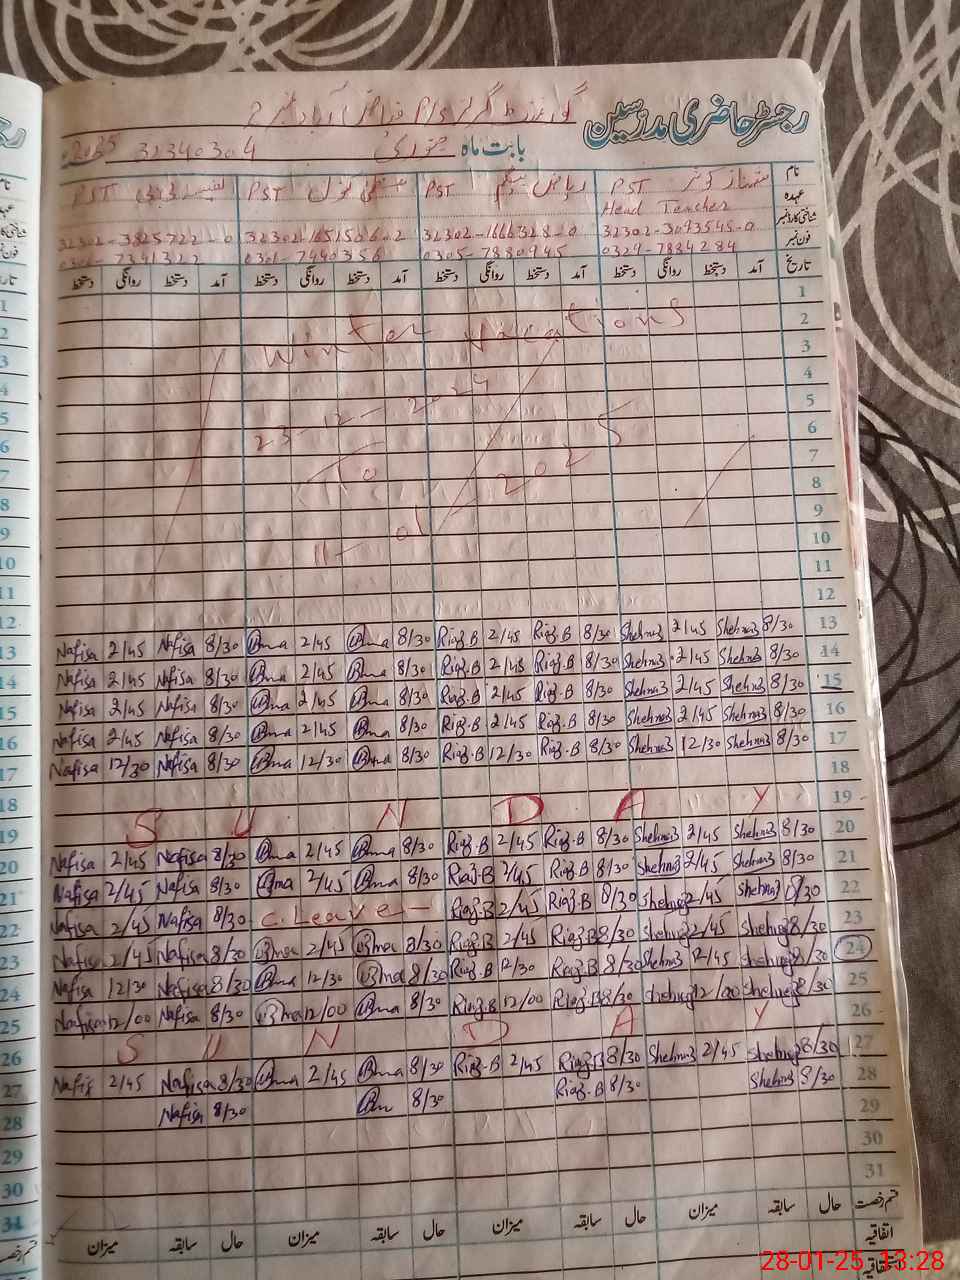 رجسٹر حاضری مدرسین
بابت ماہ جنوری 32340304 2025
نام
عہدہ PST PST PST PST
Head Teacher
شناختی کارڈ نمبر 32302-3093545-0 32302-1666328-0 32302-1651506-2 32302-3825722-0
فون نمبر 0329-7884284 0305-7880945 0301-7940356 7341322
تاریخ آمد دستخط روانگی دستخط آمد دستخط روانگی دستخط آمد دستخط روانگی دستخط آمد دستخط روانگی دستخط
1
2 Winter Vacations
3
4
5 23-12-2024
6
7 To
8
9 11-01-2025
10
11
12
Nafisa 2/45 Nafisa 8/30 Bma 2/45 Bma 8/30 Riaz.B 2/45 Riaz.B 8/30 Shehnaz 2/45 Shehnaz 8/30 13
Nafisa 2/45 Nafisa 8/30 Bma 2/45 Bma 8/30 Riaz.B 2/45 Riaz.B 8/30 Shehnaz 2/45 Shehnaz 8/30 14
Nafisa 2/45 Nafisa 8/30 Bma 2/45 Bma 8/30 Riaz.B 2/45 Riaz.B 8/30 Shehnaz 2/45 Shehnaz 8/30 15
Nafisa 2/45 Nafisa 8/30 Bma 2/45 Bma 8/30 Riaz.B 2/45 Riaz.B 8/30 Shehnaz 2/45 Shehnaz 8/30 16
Nafisa 12/30 Nafisa 8/30 Bma 12/30 Bma 8/30 Riaz.B 12/30 Riaz.B 8/30 Shehnaz 12/30 Shehnaz 8/30 17
18
S U N D A Y 19
Nafisa 2/45 Nafisa 8/30 Bma 2/45 Bma 8/30 Riaz.B 2/45 Riaz.B 8/30 Shehnaz 2/45 Shehnaz 8/30 20
Nafisa 2/45 Nafisa 8/30 Bma 2/45 Bma 8/30 Riaz.B 2/45 Riaz.B 8/30 Shehnaz 2/45 Shehnaz 8/30 21
Nafisa 2/45 Nafisa 8/30 C.Leave - Riaz.B 2/45 Riaz.B 8/30 Shehnaz 2/45 Shehnaz 8/30 22
Nafisa 2/45 Nafisa 8/30 Bma 2/45 Bma 8/30 Riaz.B 2/45 Riaz.B 8/30 Shehnaz 2/45 Shehnaz 8/30 23
Nafisa 12/30 Nafisa 8/30 Bma 12/30 Bma 8/30 Riaz.B 12/30 Riaz.B 8/30 Shehnaz 12/45 Shehnaz 8/30 24
Nafisa 12/00 Nafisa 8/30 Bma 12/00 Bma 8/30 Riaz.B 12/00 Riaz.B 8/30 Shehnaz 12/00 Shehnaz 8/30 25
S U N D A Y 26
Nafis 2/45 Nafisa 8/30 Bma 2/45 Bma 8/30 Riaz.B 2/45 Riaz.B 8/30 Shehnaz 2/45 Shehnaz 8/30 27
Nafisa 8/30 Bm 8/30 Riaz.B 8/30 Shehnaz 8/30 28
29
30
31
قسم رخصت حال سابقہ میزان حال سابقہ میزان حال سابقہ میزان حال سابقہ میزان
اتفاقیہ
28-01-25 13:28